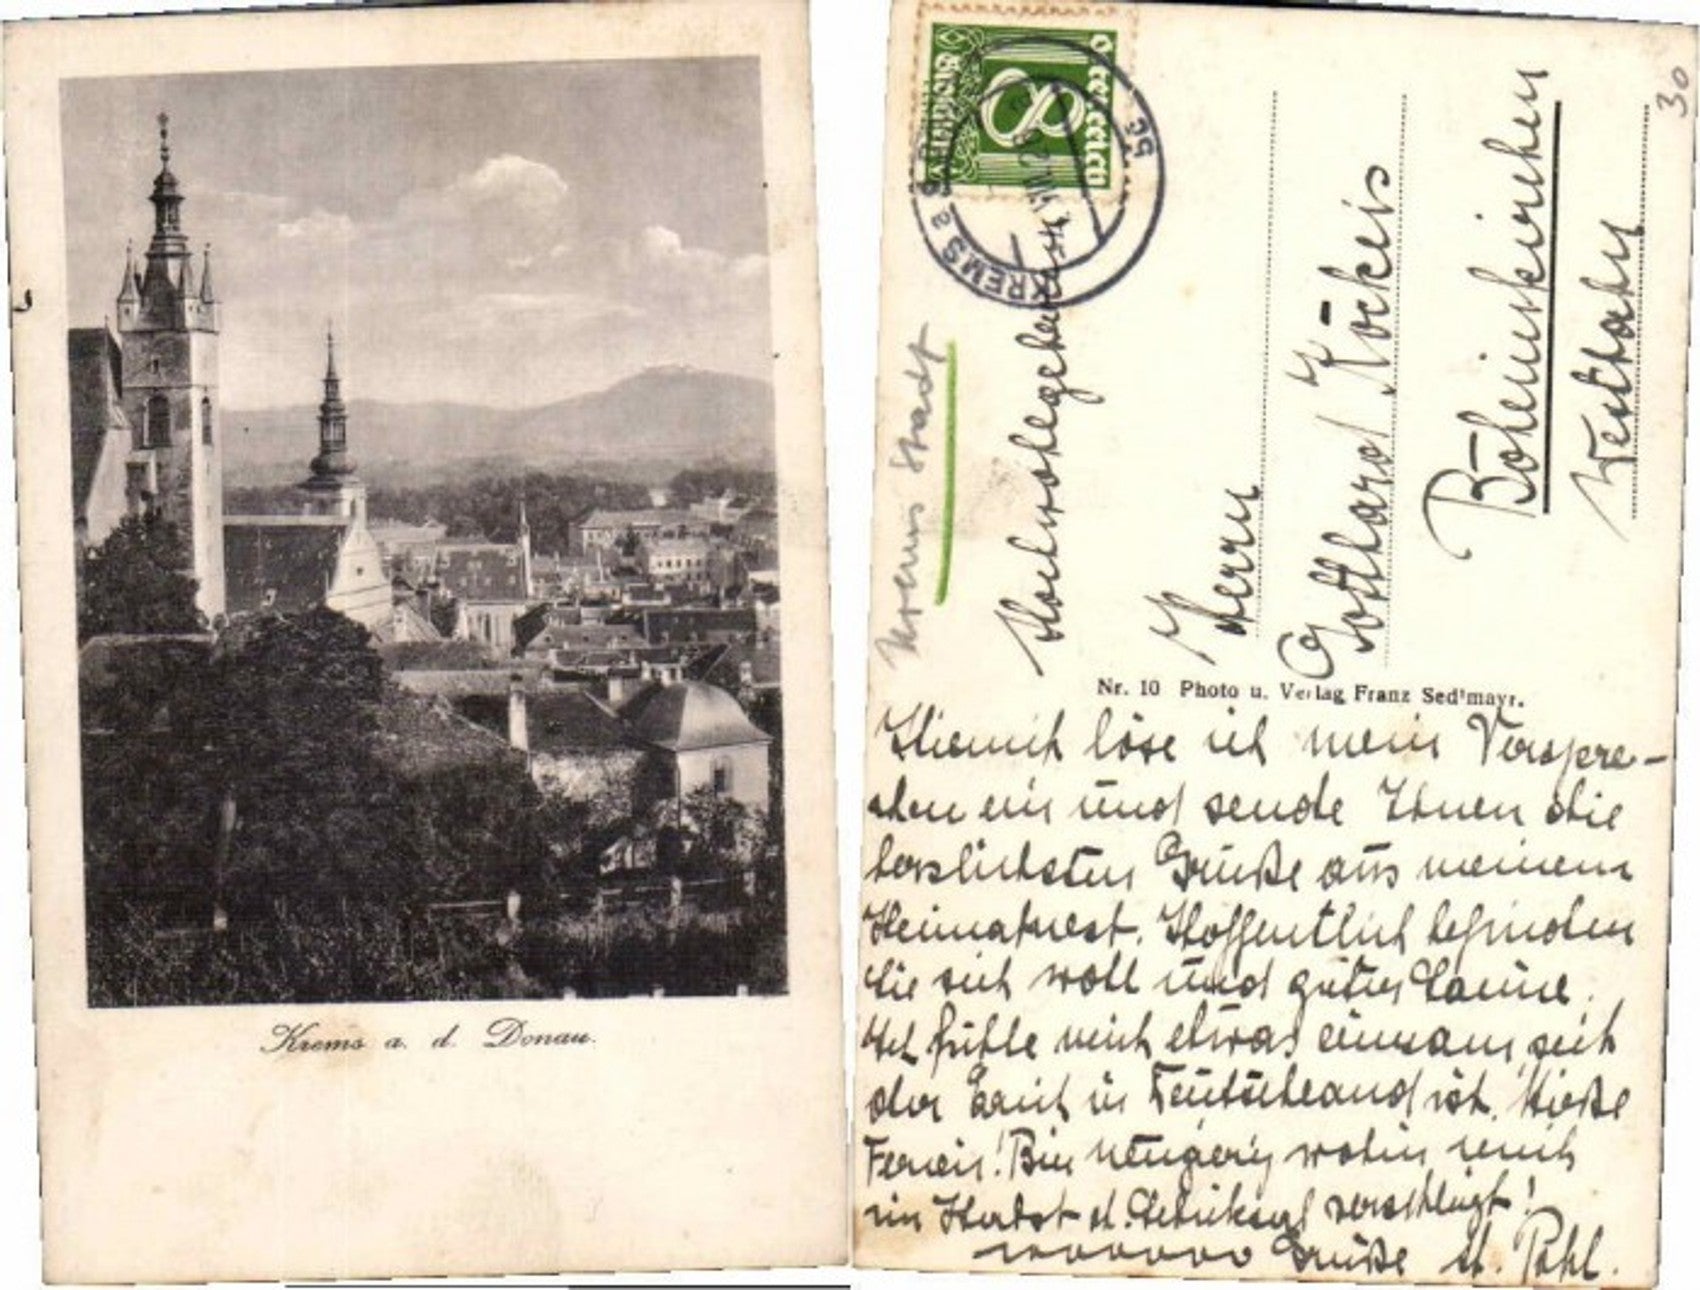 Krems a. d. Donau.
Österreich
8
Groschen
KREMS a. d.
5c
30
Krems Stadt
Hochwohlgeboren
Herrn
Gotthard
Böheimkirchen
Westbahn
Nr. 10 Photo u. Verlag Franz Sedlmayr.
Hiemit löse ich mein Verspre-
chen ein und sende Ihnen die
herzlichsten Grüße aus meinem
Heimatnest. Hoffentlich befinden
Sie sich wohl und guter Laune.
Ich fühle mich etwas einsam, seit
der in Deutschland ist.
Ferien! Bin neugierig wohin mich
im Herbst d. Schicksal verschlägt!
Grüße Pohl.